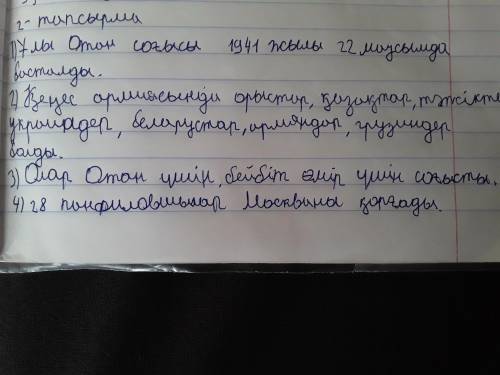 2- тапсырма
1) Ұлы Отан соғысы 1941 жылы 22 маусымда
басталды.
2) Кеңес армиясында орыстар, қазақтар, тәжікте
украиндер, беларустар, армяндар, грузиндер
болды.
3) Олар Отан үшін, бейбіт өмір үшін соғысты.
4) 28 панфиловшылар Москвины қорғады.